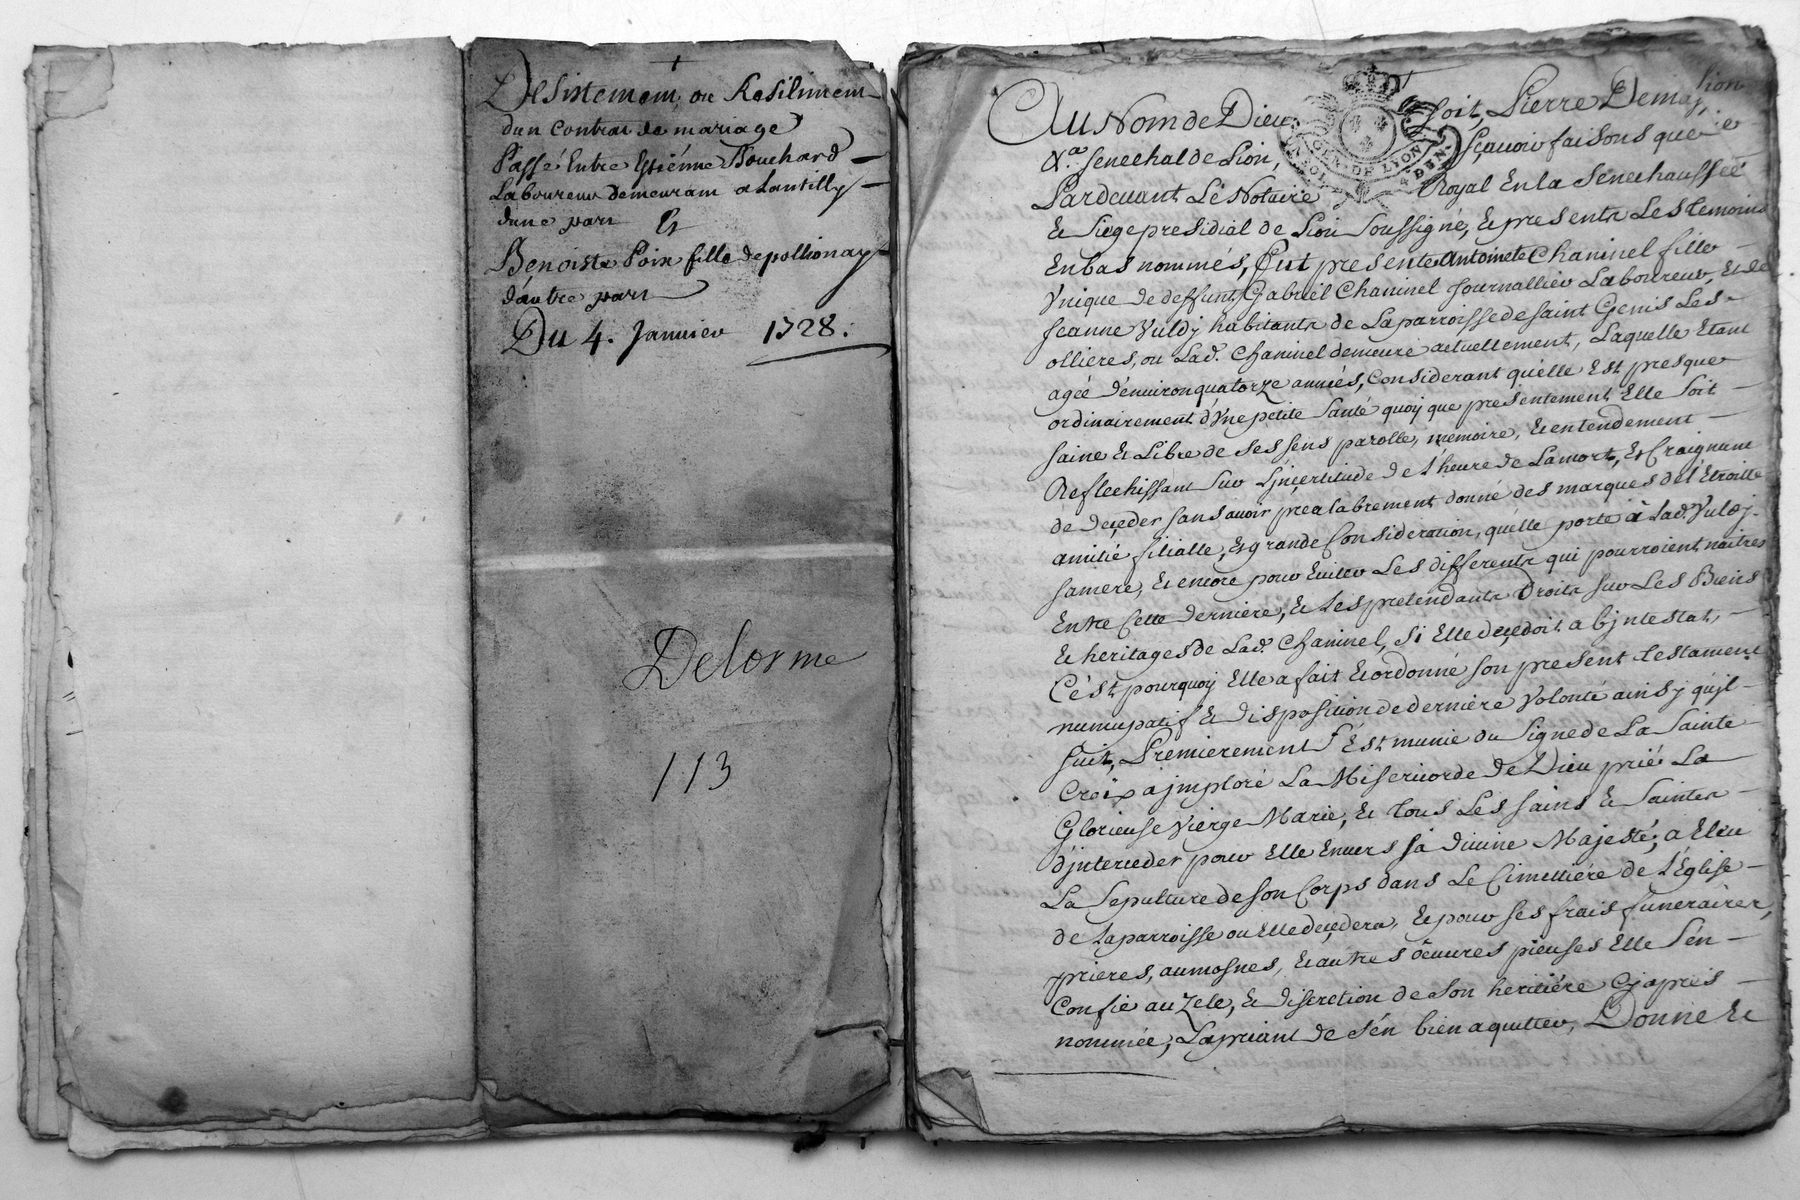 Desistement ou Resiliment
dun contrat de mariage
Passé Entre Estiénne Bouchard
Laboureur demeurant a Lantilly
dune part Et
Benoiste Poix fille de pollionay
d'autre part
Du 4. Janvier 1728.
Delorme
113
Au Nom de Dieu soit, Pierre Demas,
Senechal de Lion, sçavoir faisons que
Pardevant Lé Notaire Royal En la Senechaussée
& Siege presidial de Lion Soussigné, & presents Les temoins
En bas nommés, fut presente Antoinete Chaninel fille
Vnique de deffunt Gabriel Chaninel Journallier Laboureur, & de
Jeanne Vuldy habitants de La parroisse de saint Genis Les
ollieres, ou Lad. Chaninel demeure actuellement, Laquelle Etant
agée d'environ quatorze années, Considerant qu'elle Est presque
ordinairement d'Vne petite Santé quoy que présentement Elle Soit
saine & Libre de ses sens parolle, memoire, & entendement
Reflechissant Sur L'jnçertitude de L'heure de La mort, & Craignant
de deçeder sans avoir prealabrement donné des marques de L'Etroitte
amitié filialle, & grande Consideration, qu'elle porte à Lad. Vuldy
sa mere, & encore pour Eviter Les differents qui pourroient naitres
Entre Cette derniere, & Les pretendants Droits sur Les Biens
& heritages de Lad. Chaninel, Si Elle deçedoit abjntestat,
C'ést pourquoy Elle a fait & ordonné son present testament
nuncupatif & disposition de derniere Volonté ainsy qu'jl
suit, Premierement s'Est munie du Signe de La Sainte
Croix a jmploré La Misericorde de Dieu prié La
Glorieuse Vierge Marie, & tous Les sains & Saintes
d'jnterceder pour Elle Envers sa divine Majesté, a Eleu
La Sepulture de son Corps dans Le Cimetiére de L'Eglise
de La parroisse ou Elle deçedera, & pour ses frais funeraires,
prieres, aumosnes, & autres oeuvres pieuses Elle S'en
Confie au Zele, & discretion de Son heritiére Cy aprés
nommée, La priant de s'en bien aquitter, Donne &